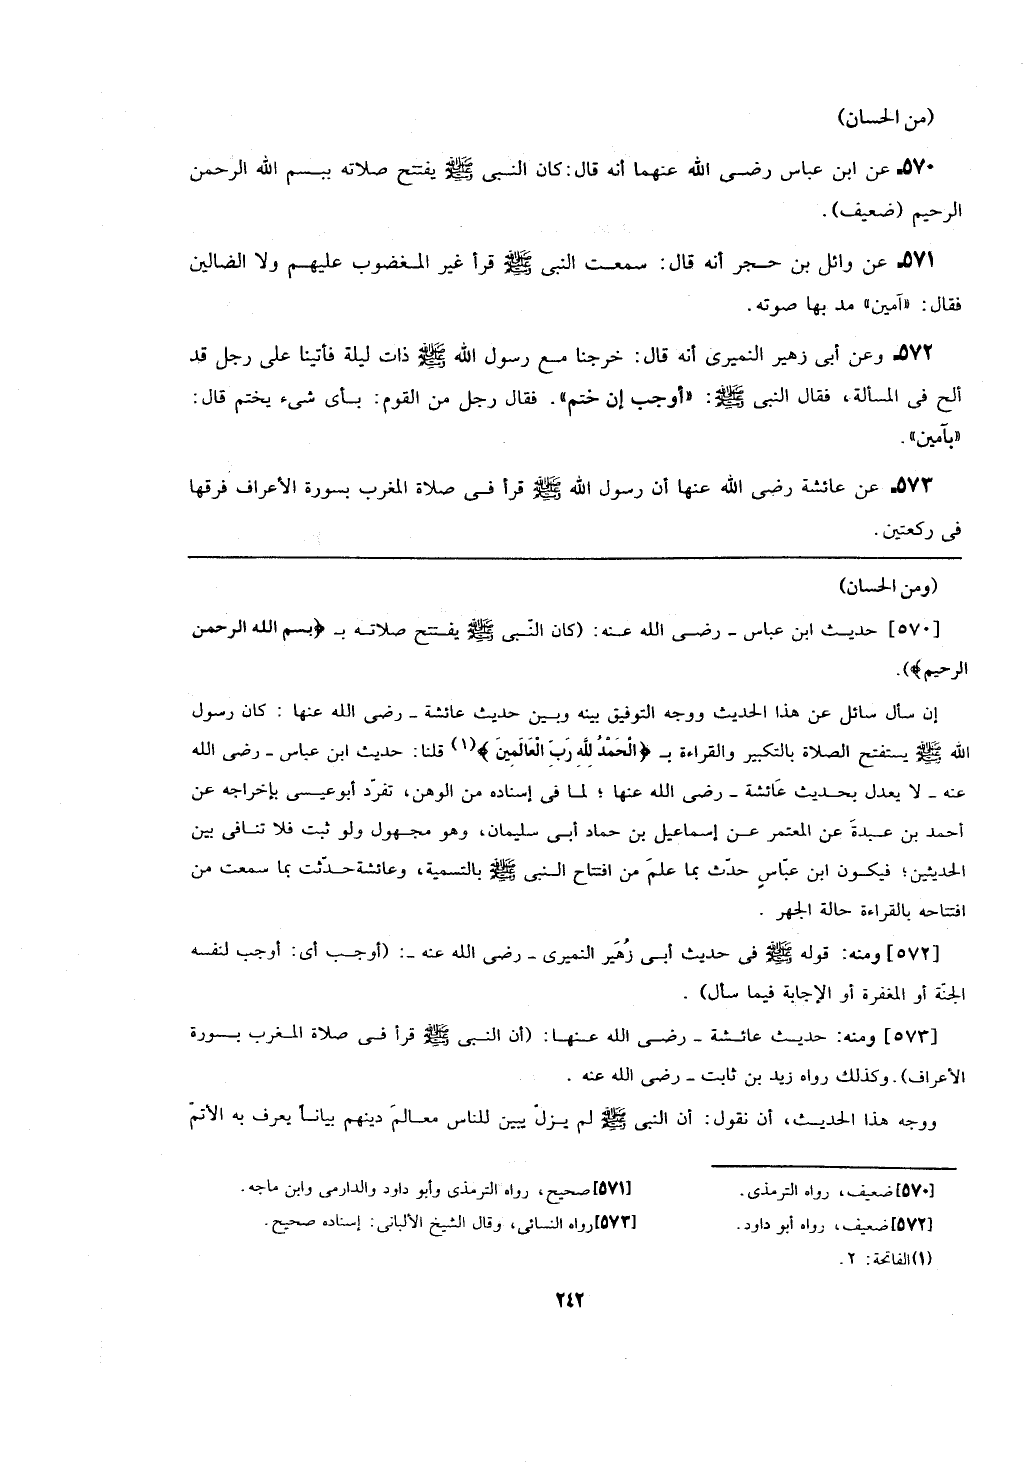 (من الحسان)
٥٧٠ـ عن ابن عباس رضى الله عنهما أنه قال: كان النبى ﷺ يفتتح صلاته ببسم الله الرحمن
الرحيم (ضعيف).
٥٧١ـ عن وائل بن حجر أنه قال: سمعت النبى ﷺ قرأ غير المغضوب عليهم ولا الضالين
فقال: «آمين» مد بها صوته.
٥٧٢ـ وعن أبى زهير النميرى أنه قال: خرجنا مع رسول الله ﷺ ذات ليلة فأتينا على رجل قد
ألح فى المسألة، فقال النبى ﷺ: «أوجب إن ختم». فقال رجل من القوم: بأى شىء يختم قال:
«بآمين».
٥٧٣ـ عن عائشة رضى الله عنها أن رسول الله ﷺ قرأ فى صلاة المغرب بسورة الأعراف فرقها
فى ركعتين.
(ومن الحسان)
[٥٧٠] حديث ابن عباس ـ رضى الله عنه: (كان النّبى ﷺ يفتتح صلاته بـ ﴿بسم الله الرحمن
الرحيم﴾).
إن سأل سائل عن هذا الحديث ووجه التوفيق بينه وبين حديث عائشة ـ رضى الله عنها : كان رسول
الله ﷺ يستفتح الصلاة بالتكبير والقراءة بـ ﴿الْحَمْدُ لِلَّهِ رَبِّ الْعَالَمِينَ﴾(١) قلنا: حديث ابن عباس ـ رضى الله
عنه ـ لا يعدل بحديث عَائشة ـ رضى الله عنها ؛ لما فى إسناده من الوهن، تفرّد أبوعيسى بإخراجه عن
أحمد بن عبدةَ عن المعتمر عن إسماعيل بن حماد أبى سليمان، وهو مجهول ولو ثبت فلا تنافى بين
الحديثين؛ فيكون ابن عبّاسٍ حدّث بما علمَ من افتتاح النبى ﷺ بالتسمية، وعائشة حدّثت بما سمعت من
افتتاحه بالقراءة حالة الجهر .
[٥٧٢] ومنه: قوله ﷺ فى حديث أبى زُهَير النميرى ـ رضى الله عنه ـ: (أوجب أى: أوجب لنفسه
الجنّة أو المغفرة أو الإجابة فيما سأل) .
[٥٧٣] ومنه: حديث عائشة ـ رضى الله عنها: (أن النبى ﷺ قرأ فى صلاة المغرب بسورة
الأعراف). وكذلك رواه زيد بن ثابت ـ رضى الله عنه .
ووجه هذا الحديث، أن نقول: أن النبى ﷺ لم يزلّ يبين للناس معالمَ دينهم بياناً يعرف به الأتمّ
[٥٧٠] ضعيف، رواه الترمذى. [٥٧١] صحيح، رواه الترمذى وأبو داود والدارمى وابن ماجه.
[٥٧٢] ضعيف، رواه أبو داود. [٥٧٣] رواه النسائى، وقال الشيخ الألبانى: إسناده صحيح.
(١) الفاتحة: ٢ .
٢٤٢